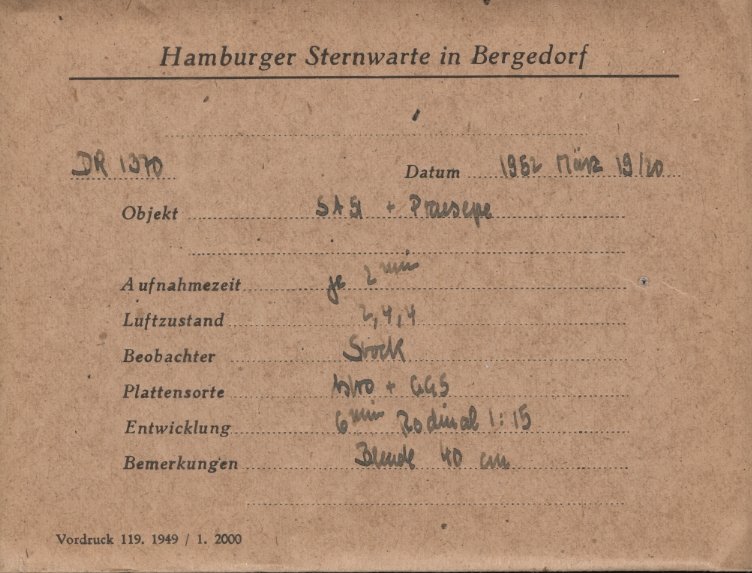 Hamburger Sternwarte in Bergedorf
DR 1370 Datum 1952 März 19/20
Objekt SA 51 + Praesepe
Aufnahmezeit je 2 min
Luftzustand 2, 4, 4
Beobachter Stock
Plattensorte Astro + GG5
Entwicklung 6 min Rodinal 1:15
Bemerkungen Blende 40 cm
Vordruck 119. 1949 / 1. 2000